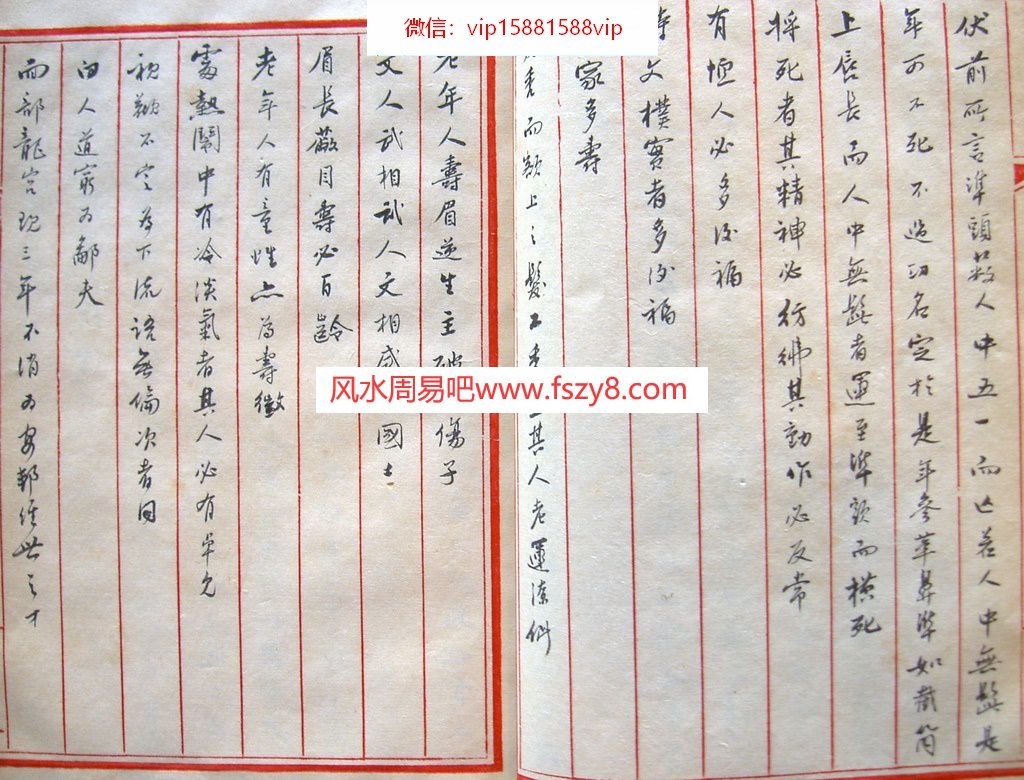 微信：vip15881588vip
风水周易吧www.fszy8.com
伏前所言準頭蓻人中五一而亡若人中無髭是
年可不死不過功名定於是年參革鼻準如截筒
上唇長而人中無髭者運至準頭而横死
將死者其精神必彷彿其動作必反常
有恒人必多後福
文樸實者多後福
家多壽
秀而額上之髮不秀其人老運潦倒
老年人壽眉逆生主傷子
文人武相武人文相國士
眉長蔽目壽必百齡
老年人有童性亦為壽徵
處熱鬧中有冷淡氣者其人必有卓見
視瞻不定為下流語無倫次者同
白人道窮為鄙夫
而部龍宮現三年不消為安邦經世之才